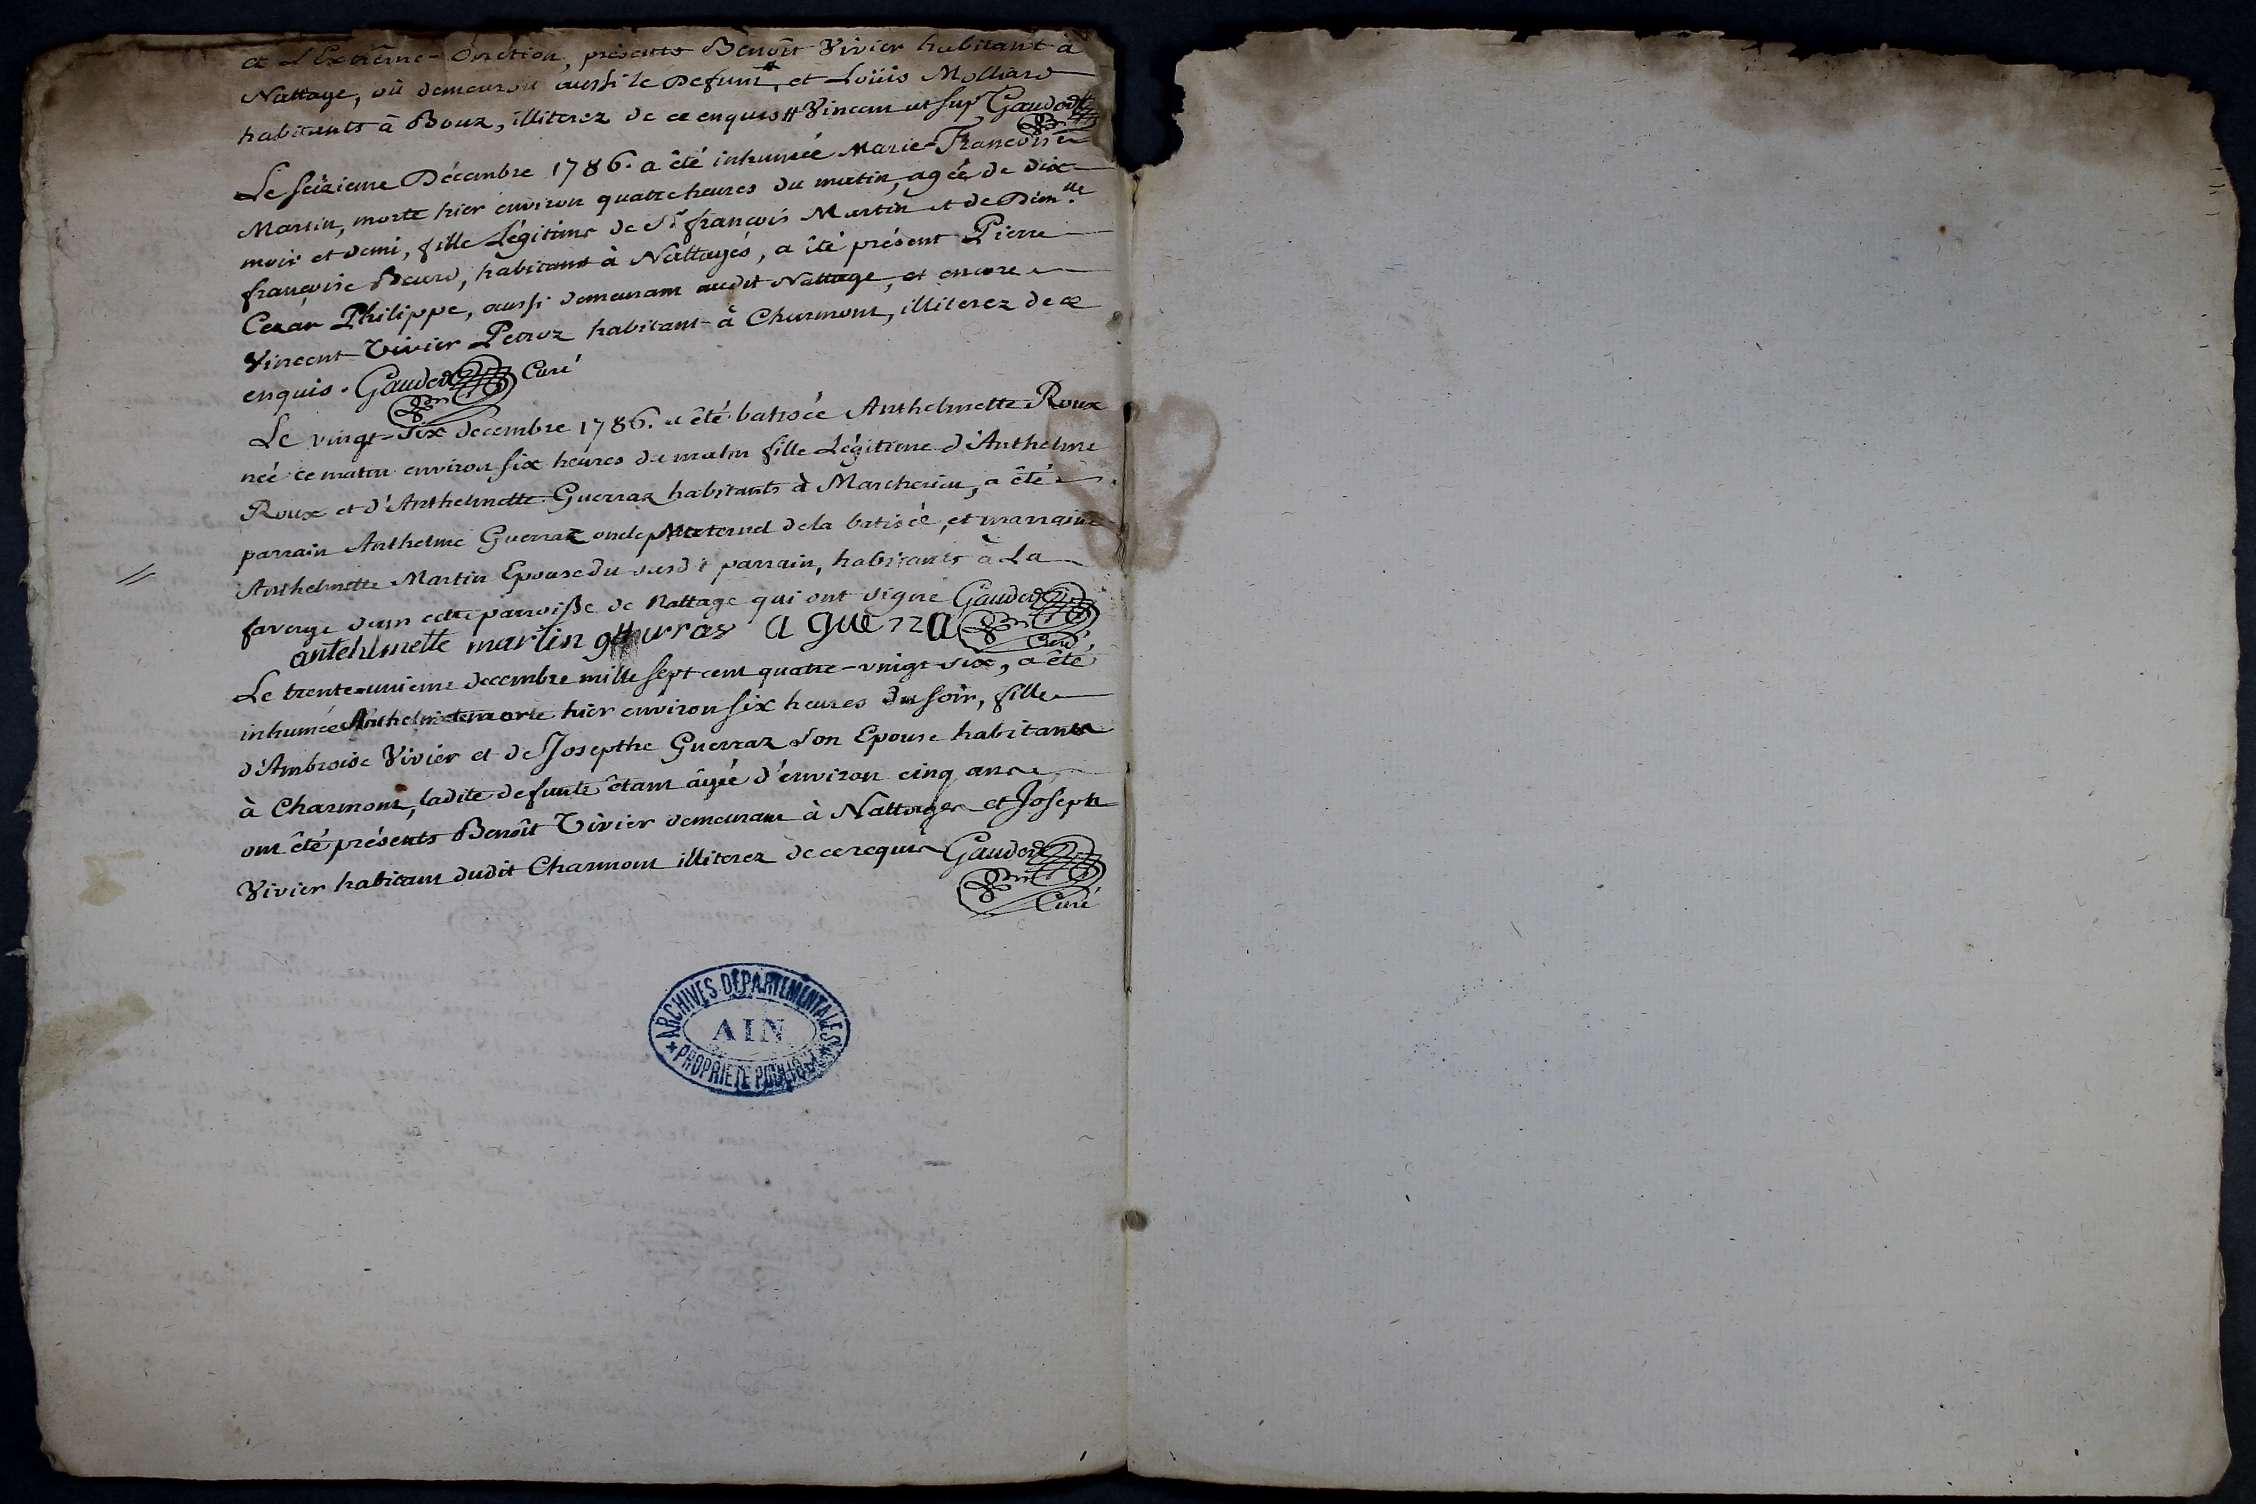 et L'Extrême-Onction, présents Benoît Vivier habitant à
Nattage, où demeuroit aussi le Defunt, et Loüis Molliard
habitants à Bouz, illiterez de ce enquis # Vincent ut sup. Gaudet
Le seizieme Décembre 1786. a êté inhumée Marie-Françoise
Martin, morte hier environ quatre heures du matin, agée de dix
mois et demi, fille Légitime de Sr. françois Martin et de Dem.lle
françoise Beurd, habitants à Nattages, a êté présent Pierre
Cezar Philippe, aussi demeurant audit Nattage, et encore
Vincent Vivier Petroz habitant à Charmont, illiterez de ce
enquis. Gaudet Curé
Le vingt-six decembre 1786. a êté batisée Anthelmette Roux
née ce matin environ six heures du matin fille Légitime d'Anthelme
Roux et d'Anthelmette Guerraz habitants à Marcherieu, a êté
parrain Anthelme Guerraz oncle Maternel de la batisée, et marraine
Anthelmette Martin Epouse du susdit parrain, habitants à La
faverge dans cette parroisse de Nattage qui ont signé Gaudet
antehlmette martin gurras a guerra Curé
Le trente-unieme decembre mille sept cent quatre-vingt-six, a êté
inhumée Anthelmette morte hier environ six heures du soir, fille
d'Ambroise Vivier et de Josepthe Guerraz son Epouse habitants
à Charmont, ladite defunte êtant âgée d'environ cinq ans
ont êté présents Benoît Vivier demeurant à Nattages et Joseph
Vivier habitant dudit Charmont illiterez de ce requis Gaudet
Curé
ARCHIVES DÉPARTEMENTALES
AIN
PROPRIÉTÉ PUBLIQUE